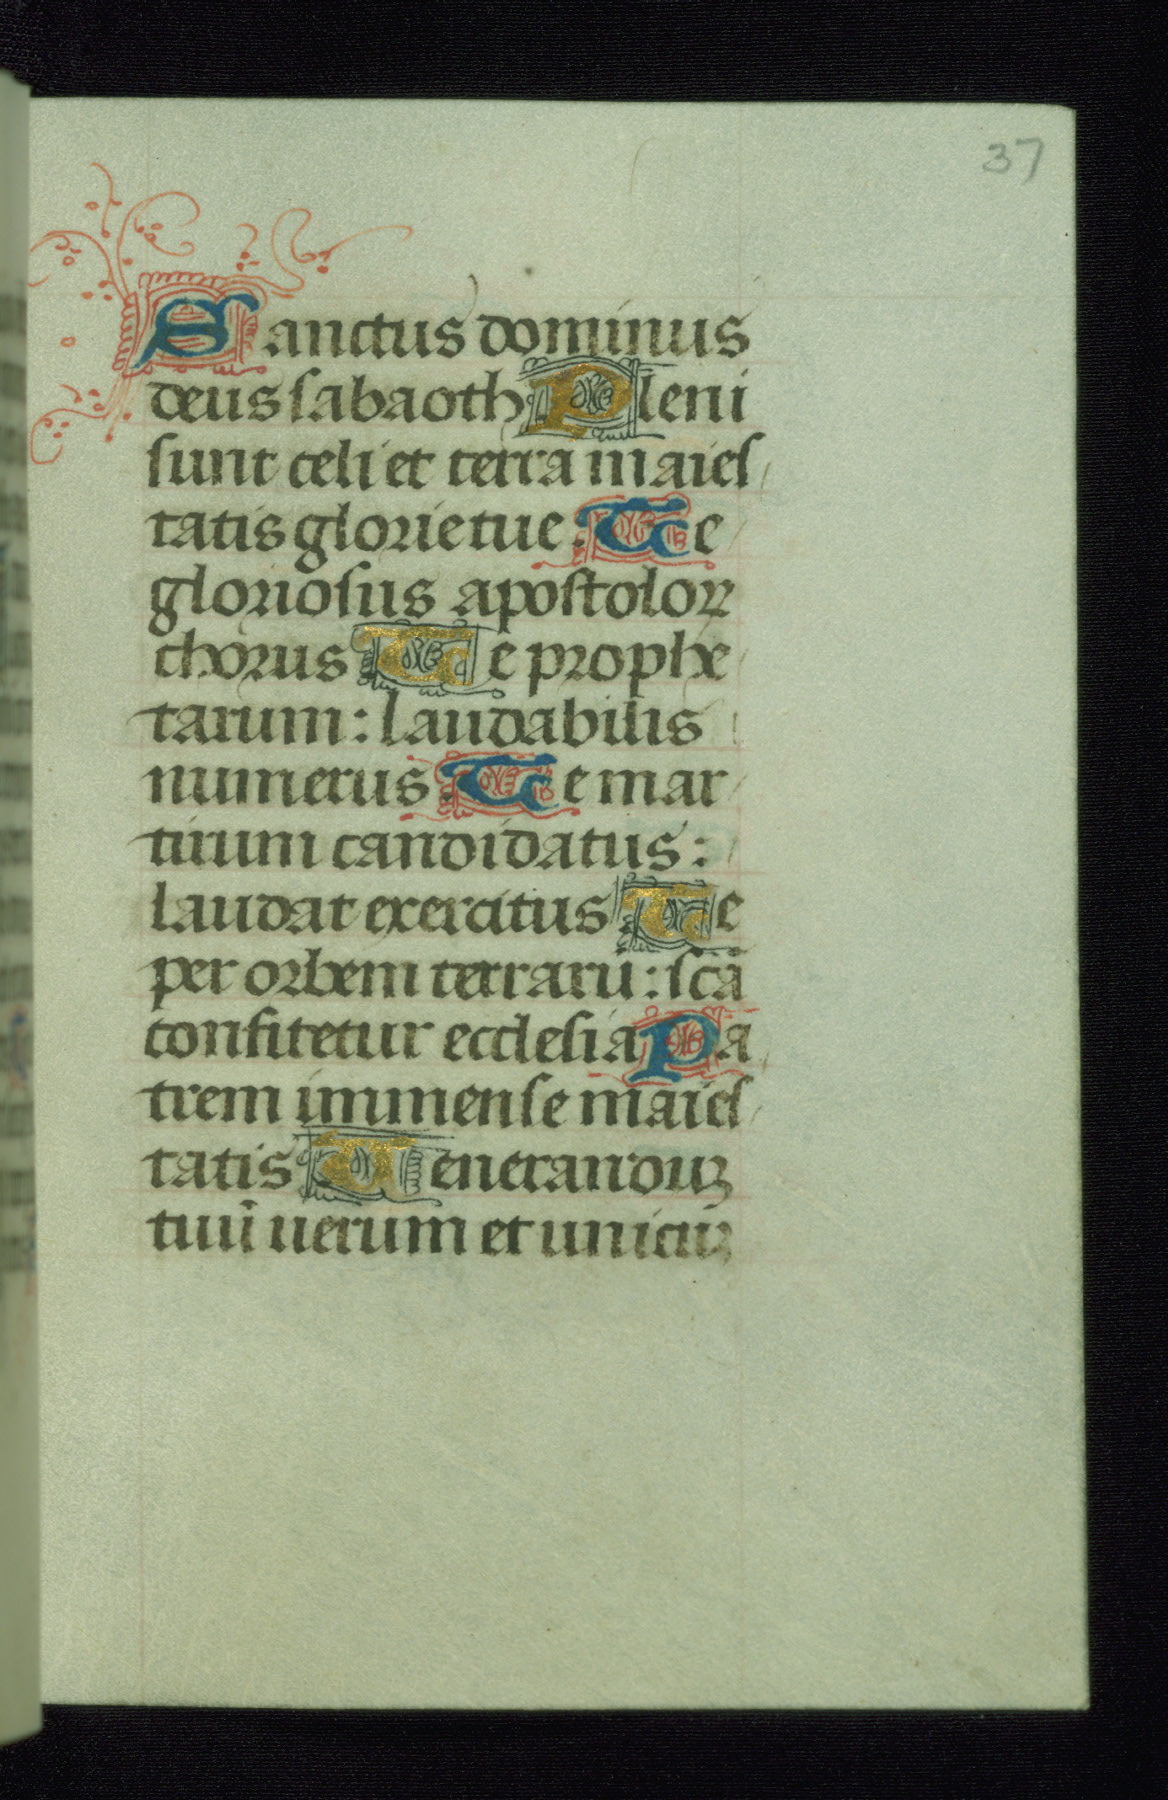 37
Sanctus dominus
deus sabaoth Pleni
sunt celi et terra maies
tatis glorie tue. Te
gloriosus apostoloꝝ
chorus Te prophe
tarum: laudabilis
numerus Te mar
tirum candidatus:
laudat exercitus Te
per orbem terrarū: scā
confitetur ecclesia Pa
trem immense maies
tatis Ueneranduꝫ
tuū uerum et unicuꝫ